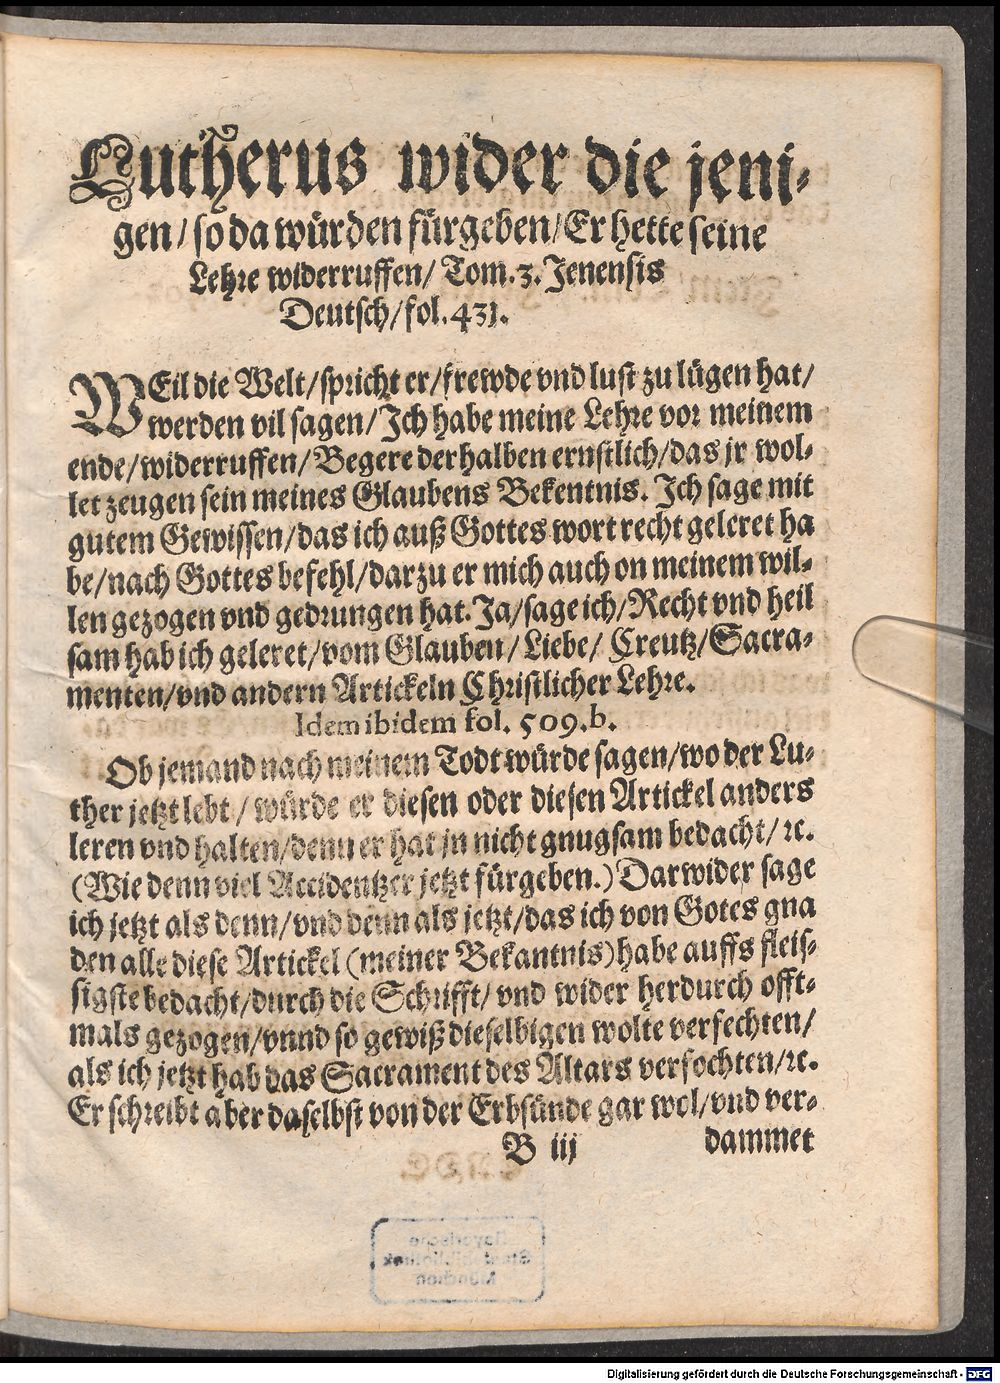 Lutherus wider die jeni-
gen/ so da würden fürgeben/ Er hette seine
Lehre widerruffen/ Tom. 3. Jenensis
Deutsch/ fol. 431.
WEil die Welt/ spricht er/ frewde vnd lust zu lügen hat/
werden vil sagen/ Ich habe meine Lehre vor meinem
ende/ widerruffen/ Begere derhalben ernstlich/ das jr wol-
let zeugen sein meines Glaubens Bekentnis. Ich sage mit
gutem Gewissen/ das ich auß Gottes wort recht geleret ha
be/ nach Gottes befehl/ darzu er mich auch on meinem wil-
len gezogen vnd gedrungen hat. Ja/ sage ich/ Recht vnd heil
sam hab ich geleret/ vom Glauben/ Liebe/ Creutz/ Sacra-
menten/ vnd andern Artickeln Christlicher Lehre.
Idem ibidem fol. 509. b.
Ob jemand nach meinem Todt würde sagen/ wo der Lu-
ther jetzt lebt/ würde er diesen oder diesen Artickel anders
leren vnd halten/ denn er hat jn nicht gnugsam bedacht/ ꝛc.
(Wie denn viel Accidentzer jetzt fürgeben.) Darwider sage
ich jetzt als denn/ vnd denn als jetzt/ das ich von Gotes gna
den alle diese Artickel (meiner Bekantnis) habe auffs fleis-
sigste bedacht/ durch die Schrifft/ vnd wider herdurch offt-
mals gezogen/ vnnd so gewiß dieselbigen wolte verfechten/
als ich jetzt hab das Sacrament des Altars verfochten/ ꝛc.
Er schreibt aber daselbst von der Erbsünde gar wol/ vnd ver-
B iij dammet
Bayerische
Staatsbibliothek
München
Digitalisierung gefördert durch die Deutsche Forschungsgemeinschaft - DFG